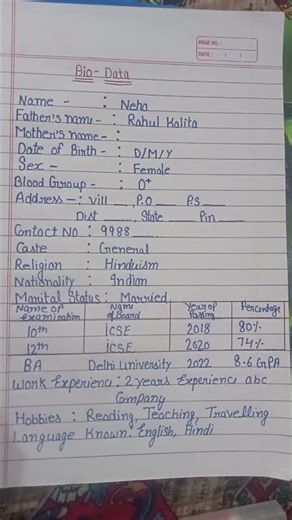 PAGE NO.:
DATE: / /
Bio-Data
Name - : Neha
Father's name - : Rahul Kalita
Mother's name - :
Date of Birth - : D/M/Y
Sex - : Female
Blood Group - : O+
Address - : Vill ___ P.O ___ P.S ___
Dist ___, State ___ Pin ___
Contact No : 9988___
Caste : General
Religion : Hinduism
Nationality : Indian
Marital Status : Married
Name of examination Name of Board Year of Passing Percentage
10th ICSE 2018 80%
12th ICSE 2020 74%
BA Delhi University 2022 8.6 GPA
Work Experience : 2 years Experience abc
Company
Hobbies : Reading, Teaching, Travelling
Language Known : English, Hindi